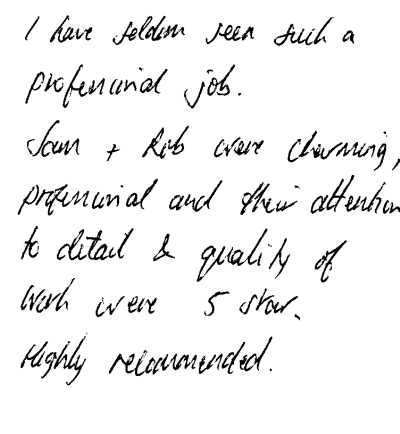 I have seldom seen such a
professional job.
Sam + Rob were charming,
professional and their attention
to detail & quality of
work were 5 star.
Highly recommended.